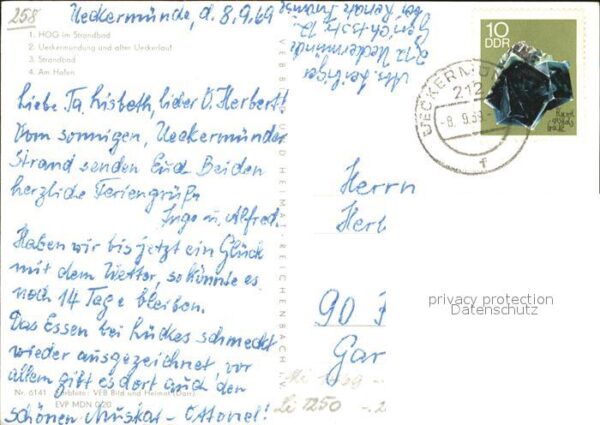 258
Ueckermünde, d. 8.9.69
1. HOG im Strandbad
2. Ueckermündung und alter Ueckerlauf
3. Strandbad
4. Am Hafen
Liebe Ta. Lisbeth, lieber O. Herbert!
Vom sonnigen, Ueckermünder
Strand senden Euch Beiden
herzliche Feriengrüße
Ingo u. Alfred.
Haben wir bis jetzt ein Glück
mit dem Wetter, so könnte es
noch 14 Tage bleiben.
Das Essen bei Lückes schmeckt
wieder ausgezeichnet vor
allem gibt es dort auch den
schönen Muskat-Ottonel!
Nr. 6141 Farbfoto: VEB Bild und Heimat
EVP MDN 0,20
VEB BILD UND HEIMAT REICHENBACH
212 Ueckermünde
Gerichtsstr.
bei Renate
10
DDR
UECKERMÜNDE
212
-8.9.69-
f
Herrn
Herb
90
Gar
privacy protection
Datenschutz
Li 1250